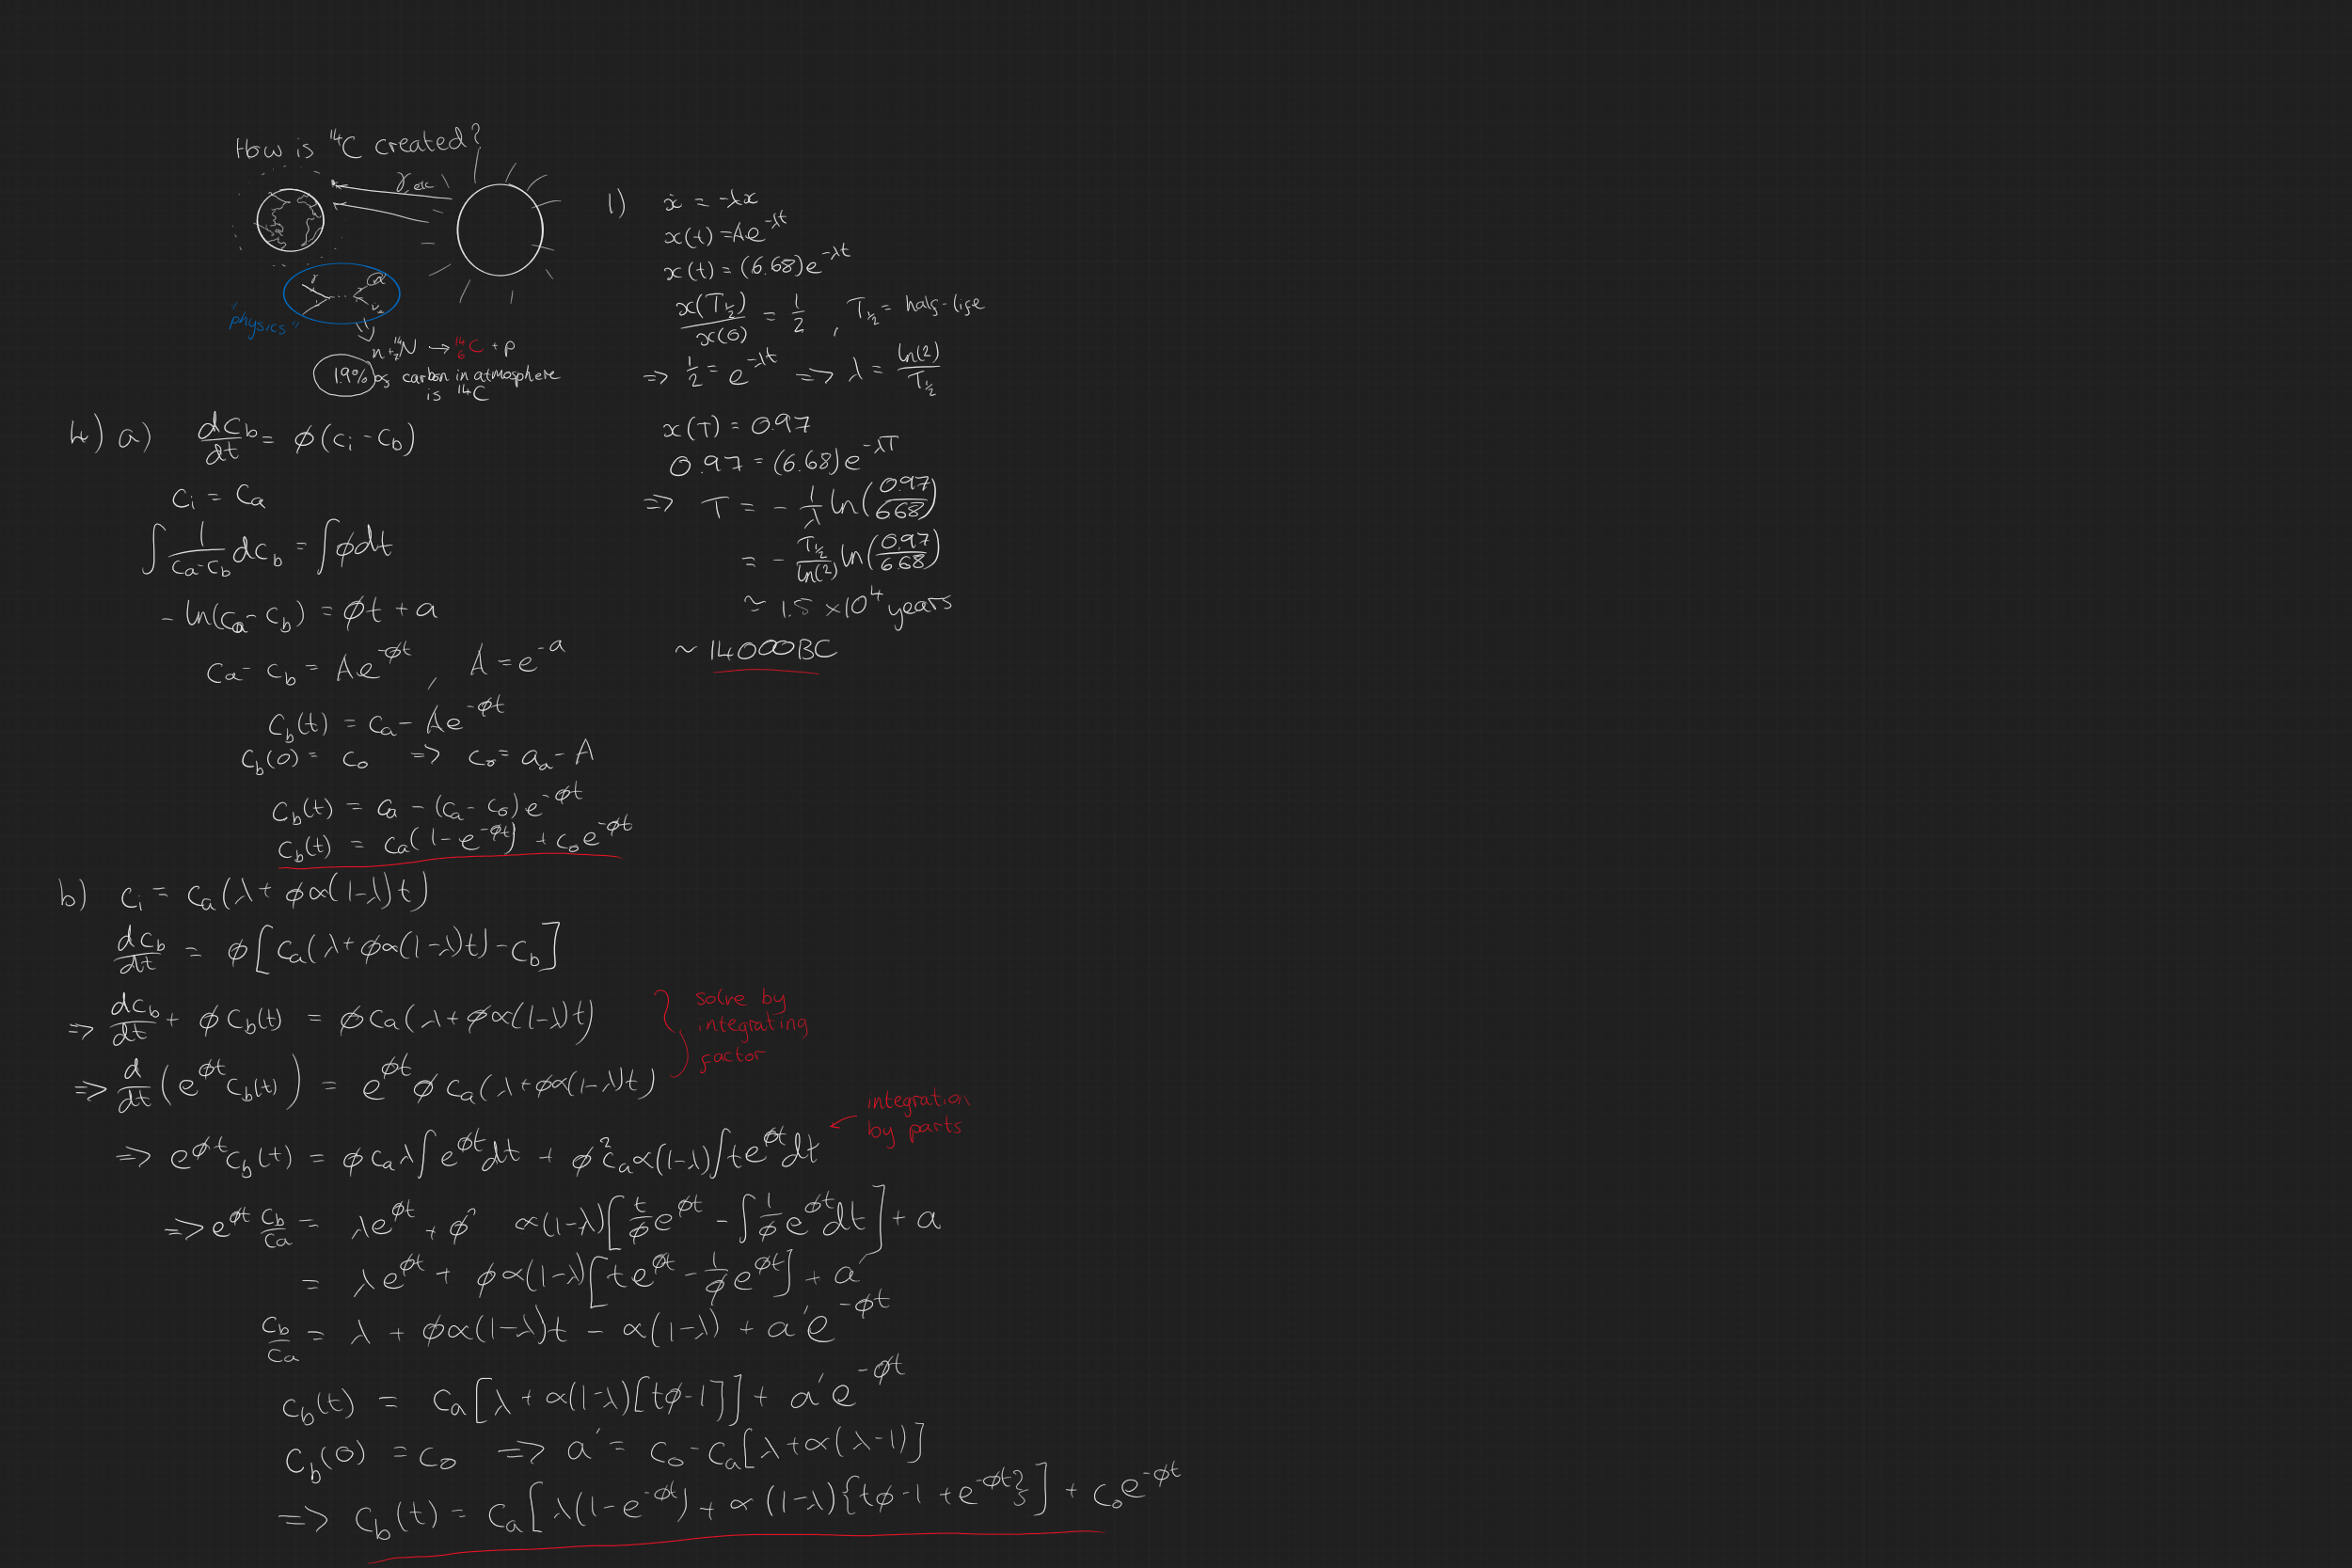 How is ¹⁴C created?
γ, etc
"physics"
n + ¹⁴₇N → ¹⁴₆C + p
1.9% of carbon in atmosphere
is ¹⁴C
1) ẋ = -λx
x(t) = Ae^{-λt}
x(t) = (6.68)e^{-λt}
x(T_{1/2})/x(0) = 1/2 , T_{1/2} = half-life
=> 1/2 = e^{-λt} => λ = ln(2)/T_{1/2}
x(T) = 0.97
0.97 = (6.68)e^{-λT}
=> T = -1/λ ln(0.97/6.68)
= -T_{1/2}/ln(2) ln(0.97/6.68)
≃ 1.5 ×10⁴ years
~ 14000BC
4) a) dc_b/dt = φ(c_i - c_b)
c_i = c_a
∫ 1/(c_a - c_b) dc_b = ∫φdt
-ln(c_a - c_b) = φt + a
c_a - c_b = Ae^{-φt} , A = e^{-a}
c_b(t) = c_a - Ae^{-φt}
c_b(0) = c_0 => c_0 = a_a - A
c_b(t) = c_a - (c_a - c_0)e^{-φt}
c_b(t) = c_a(1 - e^{-φt}) + c_0e^{-φt}
b) c_i = c_a(λ + φα(1-λ)t)
dc_b/dt = φ[c_a(λ + φα(1-λ)t) - c_b]
=> dc_b/dt + φc_b(t) = φc_a(λ + φα(1-λ)t)
solve by
integrating
factor
=> d/dt(e^{φt}c_b(t)) = e^{φt}φc_a(λ + φα(1-λ)t)
integration
by parts
=> e^{φt}c_b(t) = φc_aλ∫e^{φt}dt + φ²c_aα(1-λ)∫te^{φt}dt
=> e^{φt} c_b/c_a = λe^{φt} + φ² α(1-λ)[t/φ e^{φt} - ∫1/φ e^{φt}dt] + a
= λe^{φt} + φα(1-λ)[te^{φt} - 1/φ e^{φt}] + a'
c_b/c_a = λ + φα(1-λ)t - α(1-λ) + a'e^{-φt}
c_b(t) = c_a[λ + α(1-λ)[tφ-1]] + a'e^{-φt}
c_b(0) = c_0 => a' = c_0 - c_a[λ + α(λ-1)]
=> c_b(t) = c_a[λ(1-e^{-φt}) + α(1-λ){tφ-1+e^{-φt}}] + c_0e^{-φt}